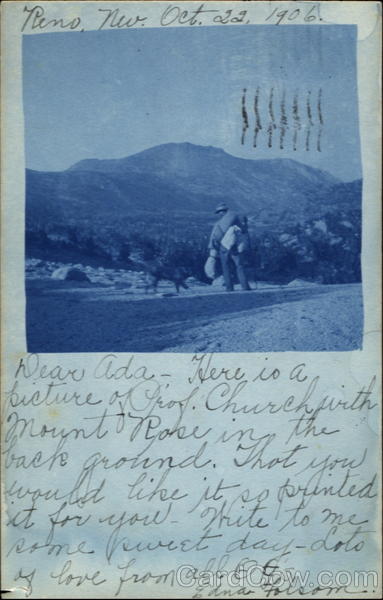 Reno, Nev. Oct. 22, 1906.
Dear Ada - Here is a
picture of Prof. Church with
Mount Rose in the
back ground. Thot you
would like it so printed
it for you - Write to me
some sweet day - Lots
of love from all to
Edna Folsom.
CardCow.com